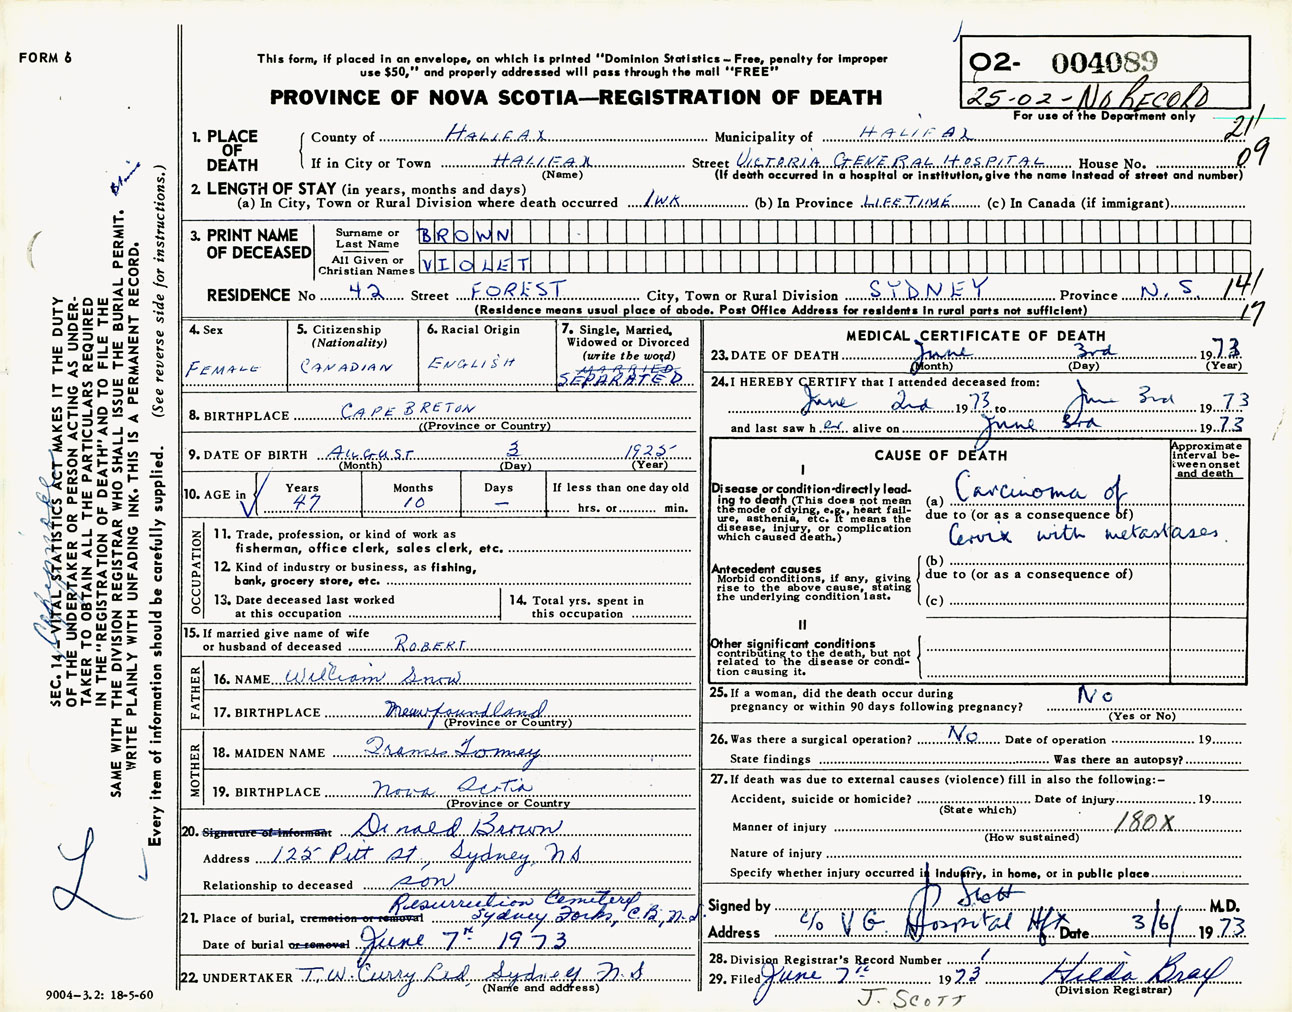 FORM 6
This form, if placed in an envelope, on which is printed "Dominion Statistics – Free, penalty for improper
use $50," and properly addressed will pass through the mail "FREE"
PROVINCE OF NOVA SCOTIA—REGISTRATION OF DEATH
02- 004089
25-02-NO RECORD
For use of the Department only
21
09
1. PLACE OF DEATH
County of HALIFAX Municipality of HALIFAX
If in City or Town HALIFAX Street VICTORIA GENERAL HOSPITAL House No.
(Name) (If death occurred in a hospital or institution, give the name instead of street and number)
2. LENGTH OF STAY (in years, months and days)
(a) In City, Town or Rural Division where death occurred 1 WK (b) In Province LIFETIME (c) In Canada (if immigrant)
3. PRINT NAME OF DECEASED
Surname or Last Name BROWN
All Given or Christian Names VIOLET
RESIDENCE No 42 Street FOREST City, Town or Rural Division SYDNEY Province N.S. 141
(Residence means usual place of abode. Post Office Address for residents in rural parts not sufficient) 17
4. Sex
FEMALE
5. Citizenship
(Nationality)
CANADIAN
6. Racial Origin
ENGLISH
7. Single, Married,
Widowed or Divorced
(write the word)
MARRIED
SEPARATED
8. BIRTHPLACE CAPE BRETON
((Province or Country)
9. DATE OF BIRTH AUGUST 3 1925
(Month) (Day) (Year)
10. AGE in Years Months Days If less than one day old
47 10 – hrs. or min.
OCCUPATION
11. Trade, profession, or kind of work as
fisherman, office clerk, sales clerk, etc.
12. Kind of industry or business, as fishing,
bank, grocery store, etc.
13. Date deceased last worked
at this occupation
14. Total yrs. spent in
this occupation
15. If married give name of wife
or husband of deceased ROBERT
FATHER
16. NAME William Snow
17. BIRTHPLACE Newfoundland
(Province or Country)
MOTHER
18. MAIDEN NAME Frances Toomey
19. BIRTHPLACE Nova Scotia
(Province or Country
20. Signature of informant Donald Brown
Address 125 Pitt St, Sydney, NS
Relationship to deceased son
Resurrection Cemetery
21. Place of burial, cremation or removal Sydney Forks, C.B, N.S.
Date of burial or removal June 7th 1973
22. UNDERTAKER T.W. Curry Ltd, Sydney N.S
(Name and address)
MEDICAL CERTIFICATE OF DEATH
23. DATE OF DEATH June 3rd 1973
(Month) (Day) (Year)
24. I HEREBY CERTIFY that I attended deceased from:
June 2nd 1973 to June 3rd 1973
and last saw her alive on June 3rd 1973
CAUSE OF DEATH
Approximate
interval be-
tween onset
and death
I
Disease or condition-directly lead-
ing to death (This does not mean
the mode of dying, e.g., heart fail-
ure, asthenia, etc. It means the
disease, injury, or complication
which caused death.)
(a) Carcinoma of
due to (or as a consequence of)
Cervix with metastases.
(b)
due to (or as a consequence of)
(c)
Antecedent causes
Morbid conditions, if any, giving
rise to the above cause, stating
the underlying condition last.
II
Other significant conditions
contributing to the death, but not
related to the disease or condi-
tion causing it.
25. If a woman, did the death occur during
pregnancy or within 90 days following pregnancy? No
(Yes or No)
26. Was there a surgical operation? No Date of operation 19
State findings Was there an autopsy?
27. If death was due to external causes (violence) fill in also the following:–
Accident, suicide or homicide? Date of injury 19
(State which)
Manner of injury 180X
(How sustained)
Nature of injury
Specify whether injury occurred in industry, in home, or in public place
Signed by J Scott M.D.
Address c/o V G. Hospital Hfx Date 3/6/ 1973
28. Division Registrar's Record Number
29. Filed June 7th 1973 Hilda Bray
(Division Registrar)
J. SCOTT
SEC. 14—VITAL STATISTICS ACT MAKES IT THE DUTY
OF THE UNDERTAKER OR PERSON ACTING AS UNDER-
TAKER TO OBTAIN ALL THE PARTICULARS REQUIRED
IN THE "REGISTRATION OF DEATH" AND TO FILE THE
SAME WITH THE DIVISION REGISTRAR WHO SHALL ISSUE THE BURIAL PERMIT.
WRITE PLAINLY WITH UNFADING INK. THIS IS A PERMANENT RECORD.
Every item of information should be carefully supplied. (See reverse side for instructions.)
9004–3.2: 18-5-60